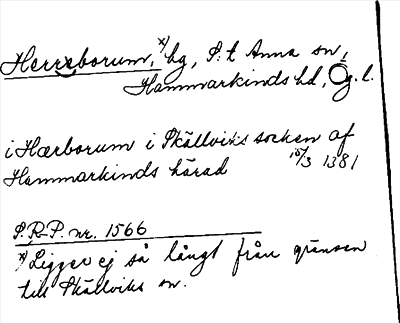 Herreborum,x) hg, S:t Anna sn,
Hammarkinds hd, Ög.l.
i Hærborum i Skällviks socken af
Hammarkinds härad 15/3 1381
S.R.P. nr. 1566
x) Ligger ej så långt från gränsen
till Skällviks sn.